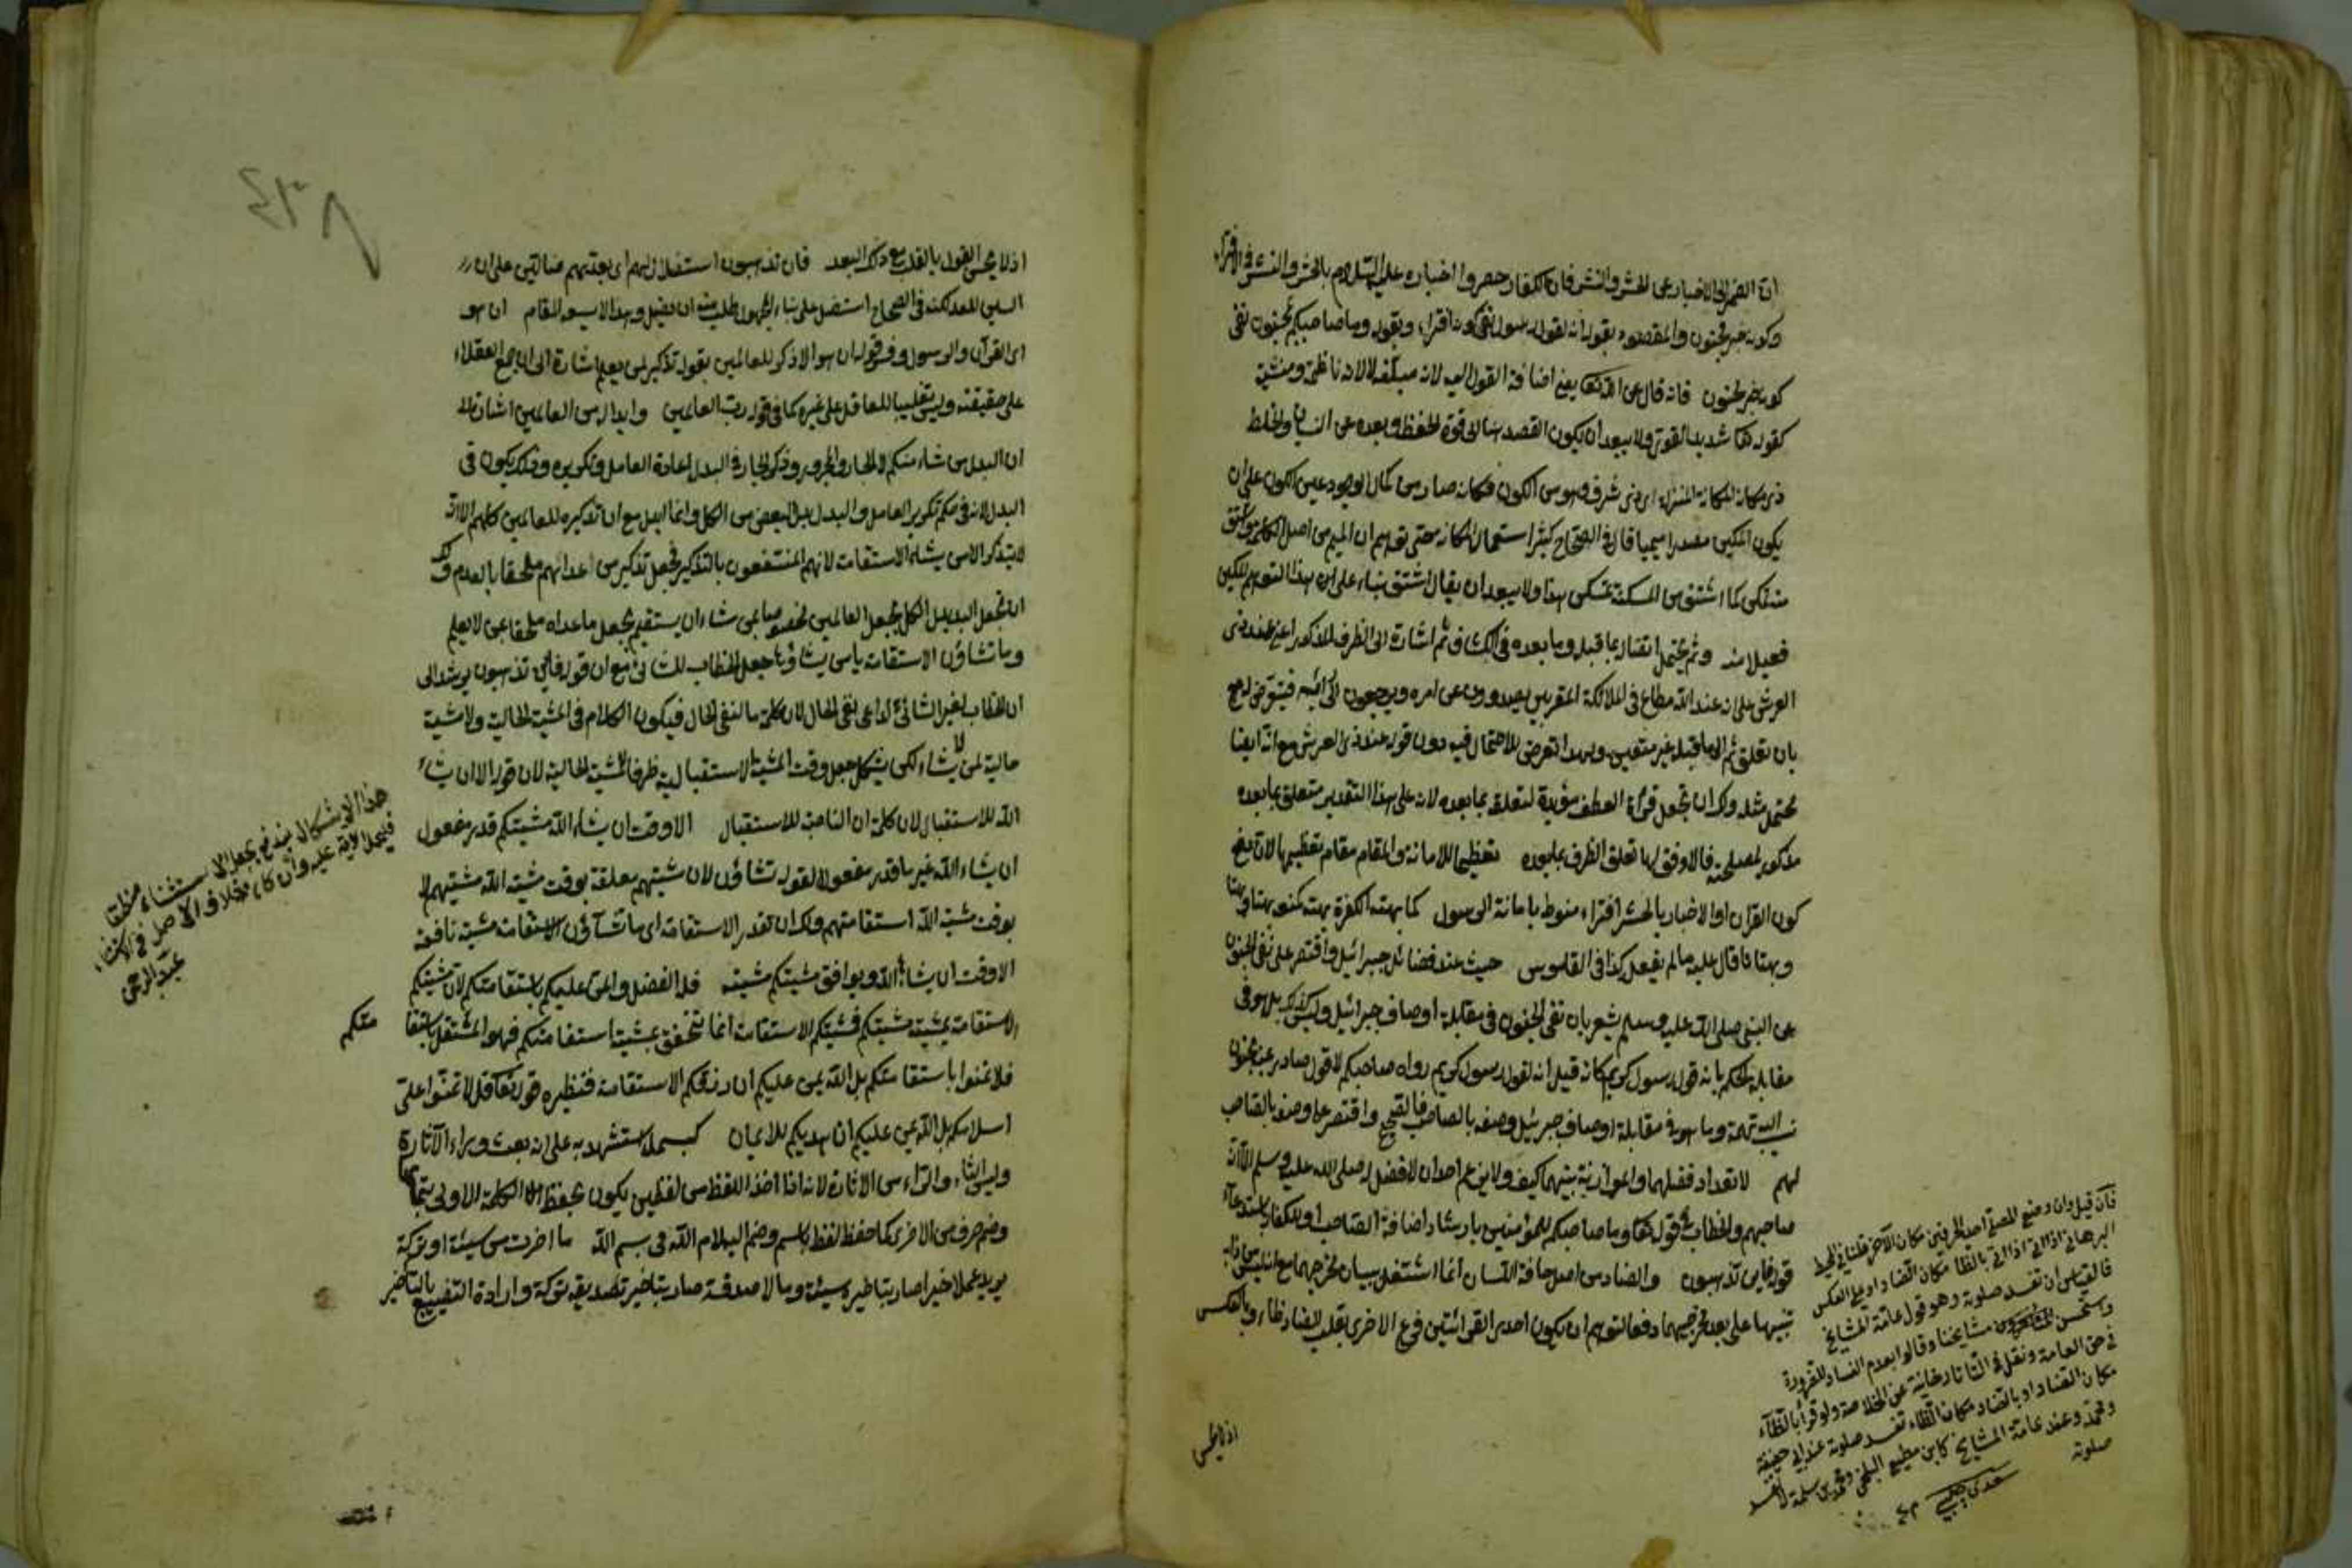 ان الضمير الى الاخبار عن الحشر والنشر فان الكفار حصروا اخباره عليه السلام بالحشر والنشر في الافتراء
وكونه خبر مجنون والمقصود بقوله انه لقول رسول نفي كونه افتراء وبقوله وما صاحبكم بمجنون نفي
كونه خبر مجنون فانه قال عن الله تعالى يعني اضافة القول اليه لانه مبلغه لا لانه ناظمه ومنشيه
كقوله تعالى شديد القوى ولا يبعد ان يكون القصد هنا الى قوة الحفظ وبعده عن النسيان والخلط
ذي مكانة المكانة المنزلة اي ذي شرف وهو من الكون فكانه صار من كمال الوجود عين الكون على ان
يكون المكين مصدرا ميميا قال في الصحاح كثر استعمال المكانة حتى توهم ان الميم من اصل الكلمة واشتق
منه تمكن كما اشتق من المسكنة تمسكن هذا ولا يبعد ان يقال اشتق بناء على هذا التوهم المكين
فعيلا منه وثم يحتمل اتصاله بما قبله وما بعده في الكشاف ثم اشارة الى الظرف المذكور اعني عند ذي
العرش على انه عند الله مطاع في الملائكة المقربين يصدرون عن امره ويرجعون الى رأيه
بان تعلق ثم الى ما قبله غير متعين وبهذا تعرض للاحتمال فيه دون قوله عند ذي العرش مع انه ايضا
محتمل مثله ولك ان تجعل قراءة العطف مؤيدة لتعلقه بما بعده لانه على هذا التقدير متعلق بما بعده
فالاوفق لها تعلق الظرف بما بعده تعظيما للامانة والمقام مقام تعظيمها لان نفي
كون القرآن او الاخبار بالحشر افتراء منوط بامانة الرسول كما بهته الكفرة بهته كمنعه بهتا وبهتا
وبهتانا قال عليه ما لم يفعل كذا في القاموس حيث عد فضائل جبرائيل واقتصر على نفي الجنون
عن النبي صلى الله عليه وسلم يشعر بان نفي الجنون في مقابلة اوصاف جبرائيل وليس كذلك بل هو في
مقابلة الحكم بانه قول رسول كريم كانه قيل انه لقول رسول كريم رواه صاحبكم لا قول صادر عن جنون
وما هو في مقابلة اوصاف جبرئيل وصفه بالصاحب واقتصر على وصفه بالصاحب
لهم لا تعداد فضلهما والموازنة بينهما كيف ولا يزعم احد ان لا فضل له صلى الله عليه وسلم الا انه
صاحبهم والخطاب في قوله تعالى وما صاحبكم للمؤمنين بارشاد اضافة الصاحب او للكفار
قوله فاين تذهبون والضاد من اصل حافة اللسان انما اشتغل ببيان مخرجهما
تنبيها على بعد مخرجيهما دفعا لتوهم ان يكون احدى القرائتين فرع الاخرى بقلب الضاد ظاء وبالعكس
اذ لا يحسن
فان قيل وان وضع المصلي احد الحرفين مكان الآخر قلنا في المحيط
البرهاني اذا اتى بالظاء مكان الضاد او على العكس
فالقياس ان تفسد صلوته وهو قول عامة المشايخ
واستحسن مشايخنا وقالوا بعدم الفساد للضرورة
في حق العامة ونقل في التاتارخانية عن الخلاصة ولو قرأ بالظاء
مكان الضاد او بالضاد مكان الظاء تفسد صلوته عند ابي حنيفة
ومحمد وعند عامة المشايخ كابن مطيع البلخي ومحمد بن سلمة لا تفسد
صلوته
سعدي چلبي
٤٣٨
اذ لا يحسن القول بالقلب مع ذلك البعد فان تذهبون استضلال لهم اي بعدتهم ضالين على ان
السين للعد لكنه في الصحاح استضل على بناء المجهول طلب منه ان يضل وهذا لا يسعه المقام ان هو
اي القرآن والرسول وفي قوله ان هو الا ذكر للعالمين بقوله تذكير لمن يعلم اشارة الى انه جمع العقلاء
على حقيقته وليس تغليبا للعاقل على غيره كما في قوله رب العالمين وابداله من العالمين اشارة الى
ان البدل من شاء منكم لا الجار والمجرور وذكر الجار في البدل لاعادة العامل وتكريره وذلك يكون في
البدل لانه في حكم تكرير العامل والبدل بدل البعض من الكل وانما ابدل مع ان تذكيره للعالمين كلهم الا انه
لا يتذكر الا من يشاء الاستقامة لانهم المنتفعون بالتذكير فجعل تذكير من اعداهم ملحقا بالعدم ولك
ان تجعل البدل بدل الكل بجعل العالمين مخصوصا بمن شاء ان يستقيم بجعل ما عداه ملحقا بمن لا يعلم
وما تشاؤن الاستقامة يا من يشاؤها جعل الخطاب للشائي مع ان قوله فاين تذهبون يرشد الى
ان الخطاب لغير الشائي لداعي نفي الحال لان كلمة ما لنفي الحال فيكون الكلام في المشية الحالية ولا مشية
حالية لمن لا يشاء لكن يشكل جعل وقت المشية الاستقبالية ظرفا للمشية الحالية لان قوله الا ان يشاء
الله للاستقبال لان كلمة ان الناصبة للاستقبال الا وقت ان يشاء الله مشيتكم قدر مفعول
ان يشاء الله غير ما قدر مفعولا لقوله تشاؤن لان مشيتهم معلقة بوقت مشية الله مشيتهم لا
بوقت مشية الله استقامتهم ولك ان تقدر الاستقامة اي ما تشاؤن الاستقامة مشية نافعة
الا وقت ان يشاء الله ويوافق مشيتكم مشيته فله الفضل والحق عليكم باستقامتكم لان مشيتكم
الاستقامة بمشية مشيتكم فمشيتكم الاستقامة انما تتحقق بمشية استقامتكم فهو المستقل باستقا متكم
فلا تمنوا باستقامتكم بل الله يمن عليكم ان رزقكم الاستقامة فنظيره قوله تعالى قل لا تمنوا علي
اسلامكم بل الله يمن عليكم ان هديكم للايمان كبسملة استشهد به على انه بعث وراء الاثارة
وليس الثاء والراء من الاثارة لانه اذا اخذ اللفظ من لفظين يكون بحفظ الكلمة الاولى بتمامها
وضم حرف من الاخرى كما حفظ لفظ باسم وضم اليه لام الله في بسم الله ما اخرت من سيئة او تركة
يريد عملا خيرا صار بتاخيره سيئة ومالا صدقة صار بتاخير تصديقه تركة وارادة التضييع بالتاخير
هذا الاشكال يندفع بجعل الاستثناء منقطعا
فيحمل الآية عليه وان كان خلاف الاصل في الاستثناء
عبد الرحمن